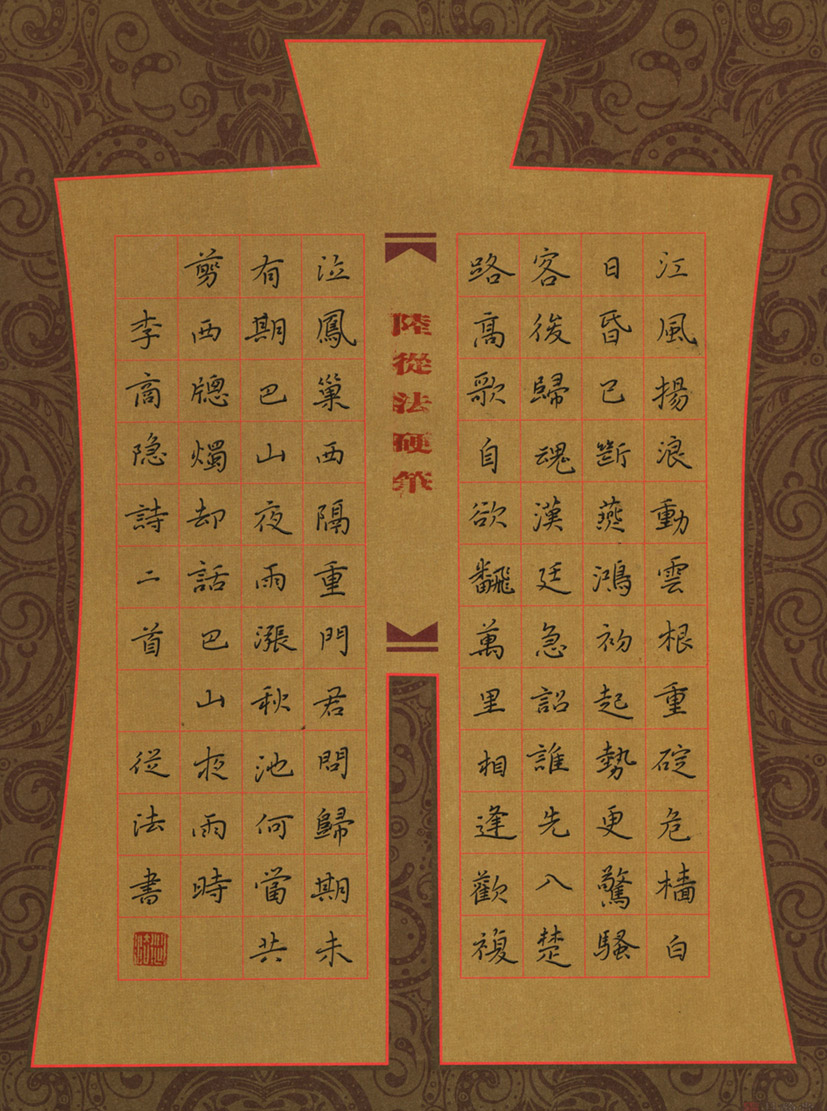 江風揚浪動雲根重碇危檣白
日昏已斷燕鴻初起勢更驚騷
客後歸魂漢廷急詔誰先入楚
路高歌自欲飜萬里相逢歡複
陸從法硬筆
泣鳳巢西隔重門君問歸期未
有期巴山夜雨漲秋池何當共
翦西牕燭却話巴山夜雨時
李商隐詩二首 從法書